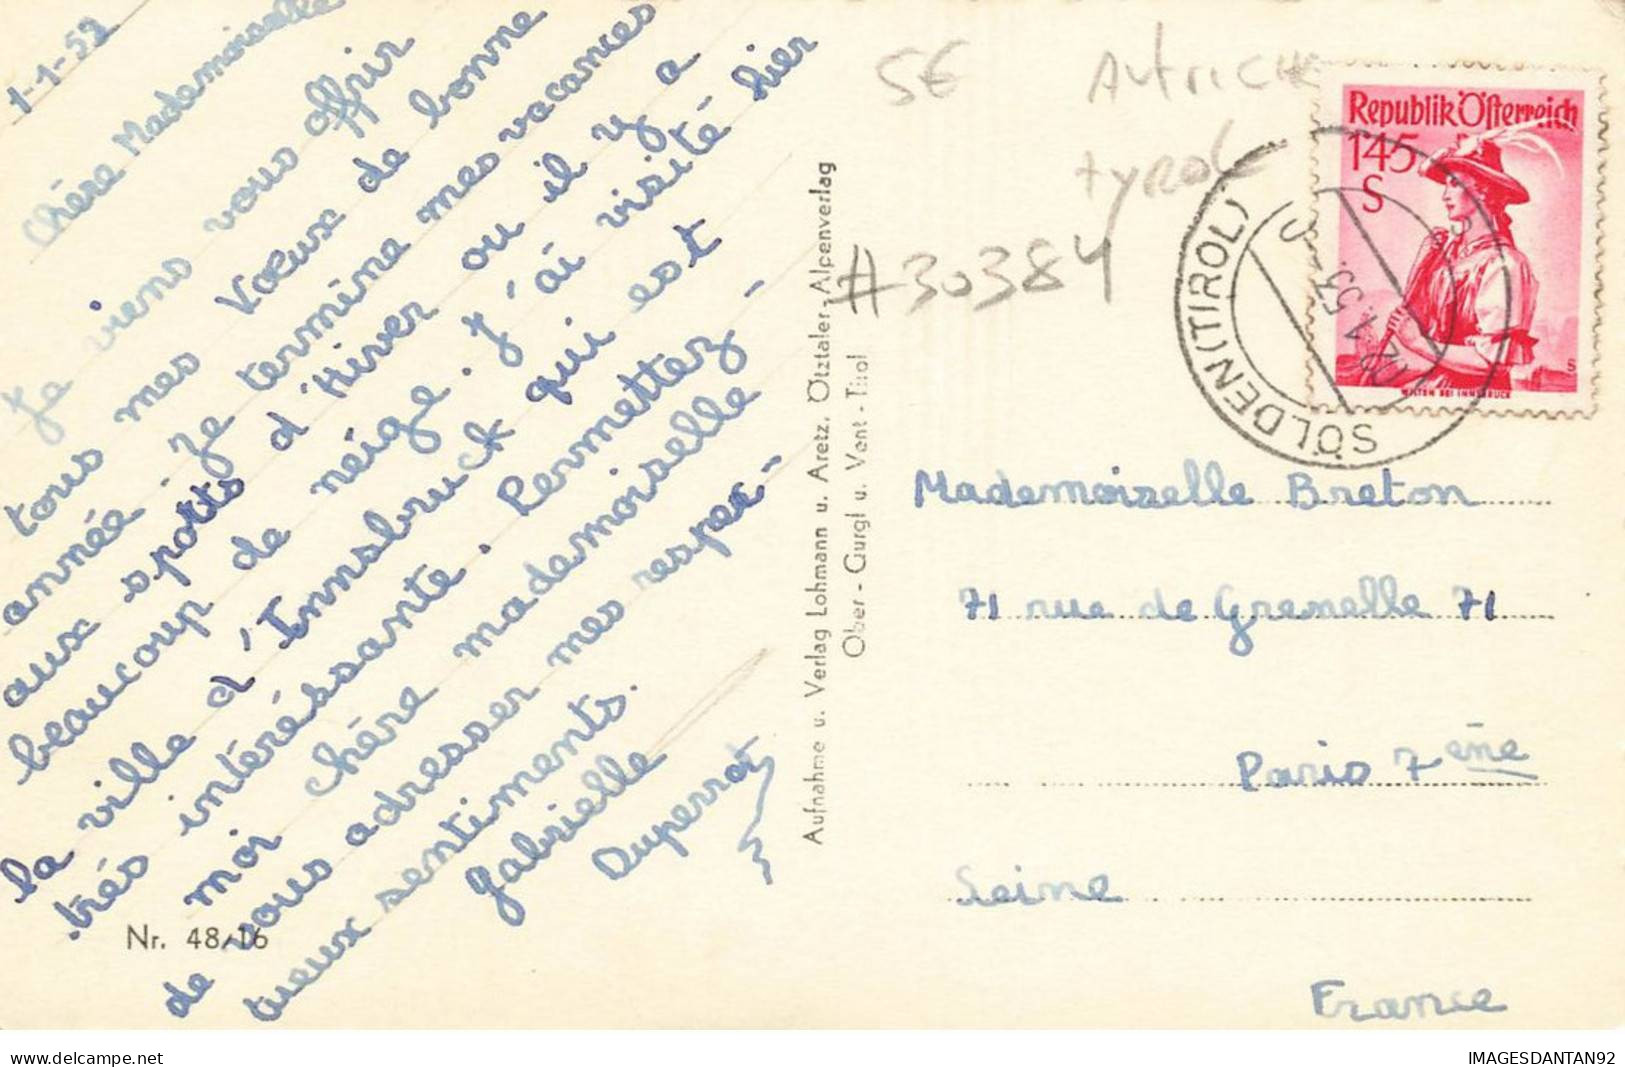 1-1-53
Chère Mademoiselle
Je viens vous offrir
tous mes vœux de bonne
année. Je termine mes vacances
aux sports d'hiver ou il y a
beaucoup de neige. J'ai visité hier
la ville d'Innsbruck qui est
très intéréssante. Permettez-
moi chère mademoiselle
de vous adresser mes respec-
tueux sentiments.
Gabrielle
Duperrat
Nr. 48/16
Aufnahme u. Verlag Lohmann u. Aretz, Ötztaler-Alpenverlag
Ober-Gurgl u. Vent-Tirol
5€
Autriche
tyrol
#30384
Republik Österreich
145
S
WILTEN BEI INNSBRUCK
SÖLDEN (TIROL)
02.1.53.
Mademoiselle Breton
71 rue de Grenelle 71
Paris 7ème
Seine
France
delcampe.net
IMAGESDANTAN92